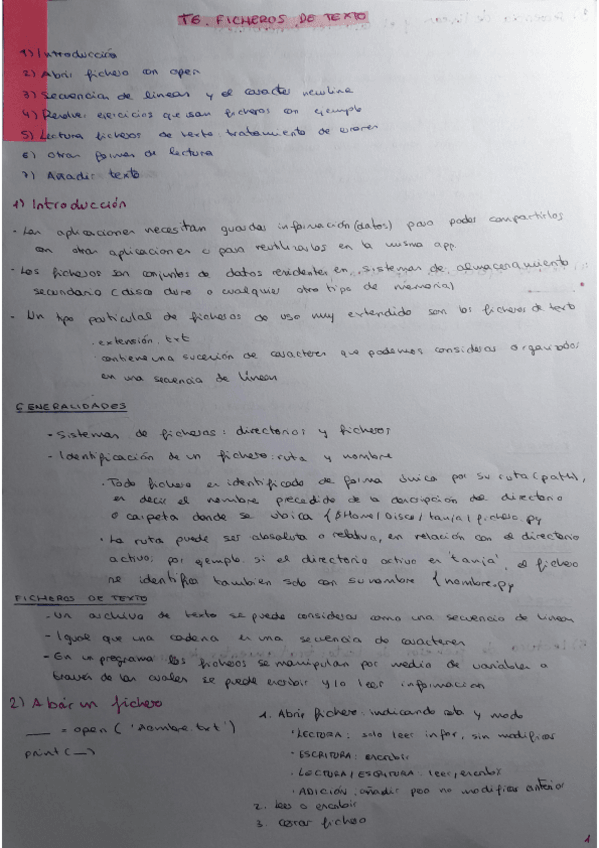 T6. FICHEROS DE TEXTO
1) Introducción
2) Abrir fichero con open
3) Secuencias de lineas y el caracter newline
4) Resolver ejercicios que usan ficheros con ejemplo
5) Lectura ficheros de texto: tratamiento de errores
6) Otras formas de lectura
7) Añadir texto
1) Introducción
- Las aplicaciones necesitan guardar información (datos) para poder compartirlos
con otras aplicaciones o para reutilizarlos en la misma app.
- Los ficheros son conjuntos de datos residentes en sistemas de almacenamiento
secundario (disco duro o cualquier otro tipo de memoria)
- Un tipo particular de ficheros de uso muy extendido son los ficheros de texto
· extensión .txt
· contiene una sucesión de caracteres que podemos considerar organizados
en una secuencia de lineas
GENERALIDADES
- Sistemas de ficheros: directorios y ficheros
- Identificación de un fichero: ruta y nombre
· Todo fichero es identificado de forma única por su ruta (path),
es decir el nombre precedido de la descripción del directorio
o carpeta donde se ubica {$Home/Disco/tanja/fichero.py
· La ruta puede ser absoluta o relativa, en relación con el directorio
activo, por ejemplo. si el directorio activo es 'tanja', el fichero
se identifica tambien solo con su nombre {nombre.py
FICHEROS DE TEXTO
- Un archivo de texto se puede considerar como una secuencia de lineas
- Igual que una cadena es una secuencia de caracteres
- En un programa los ficheros se manipulan por medio de variables a
través de las cuales se puede escribir y/o leer información
2) Abrir un fichero
___ = open ( 'nombre.txt')
print (__)
1. Abrir fichero: indicando ruta y modo
· LECTURA: solo leer infor, sin modificar
· ESCRITURA: escribir
· LECTURA/ESCRITURA: leer, escribir
· ADICIÓN: añadir pero no modificar anterior
2. leer o escribir
3. cerrar fichero
1